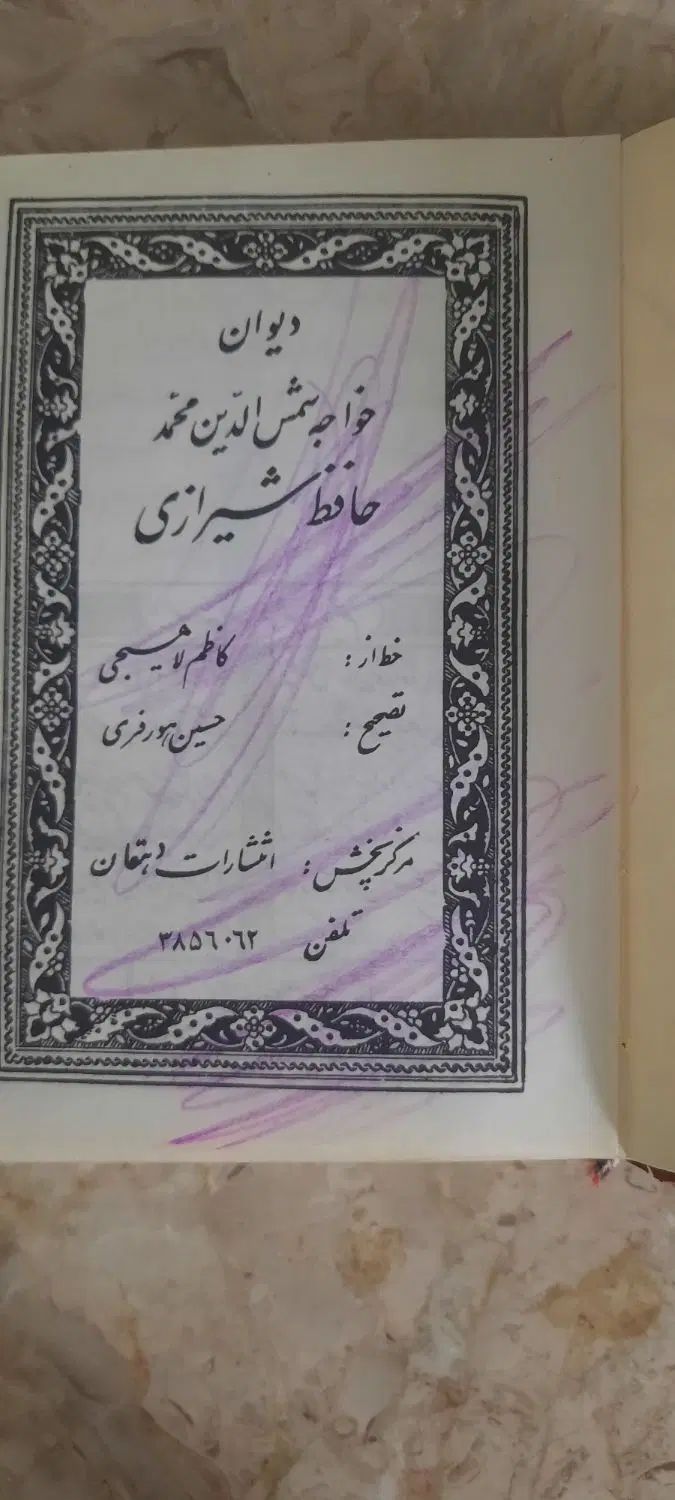 دیوان
خواجه شمس الدّین محمّد
حافظ شیرازی
خط از : کاظم لاهیجی
تصحیح : حسین هورفری
مرکز پخش : انتشارات دهقان
تلفن ۳۸۵۶۰۶۲